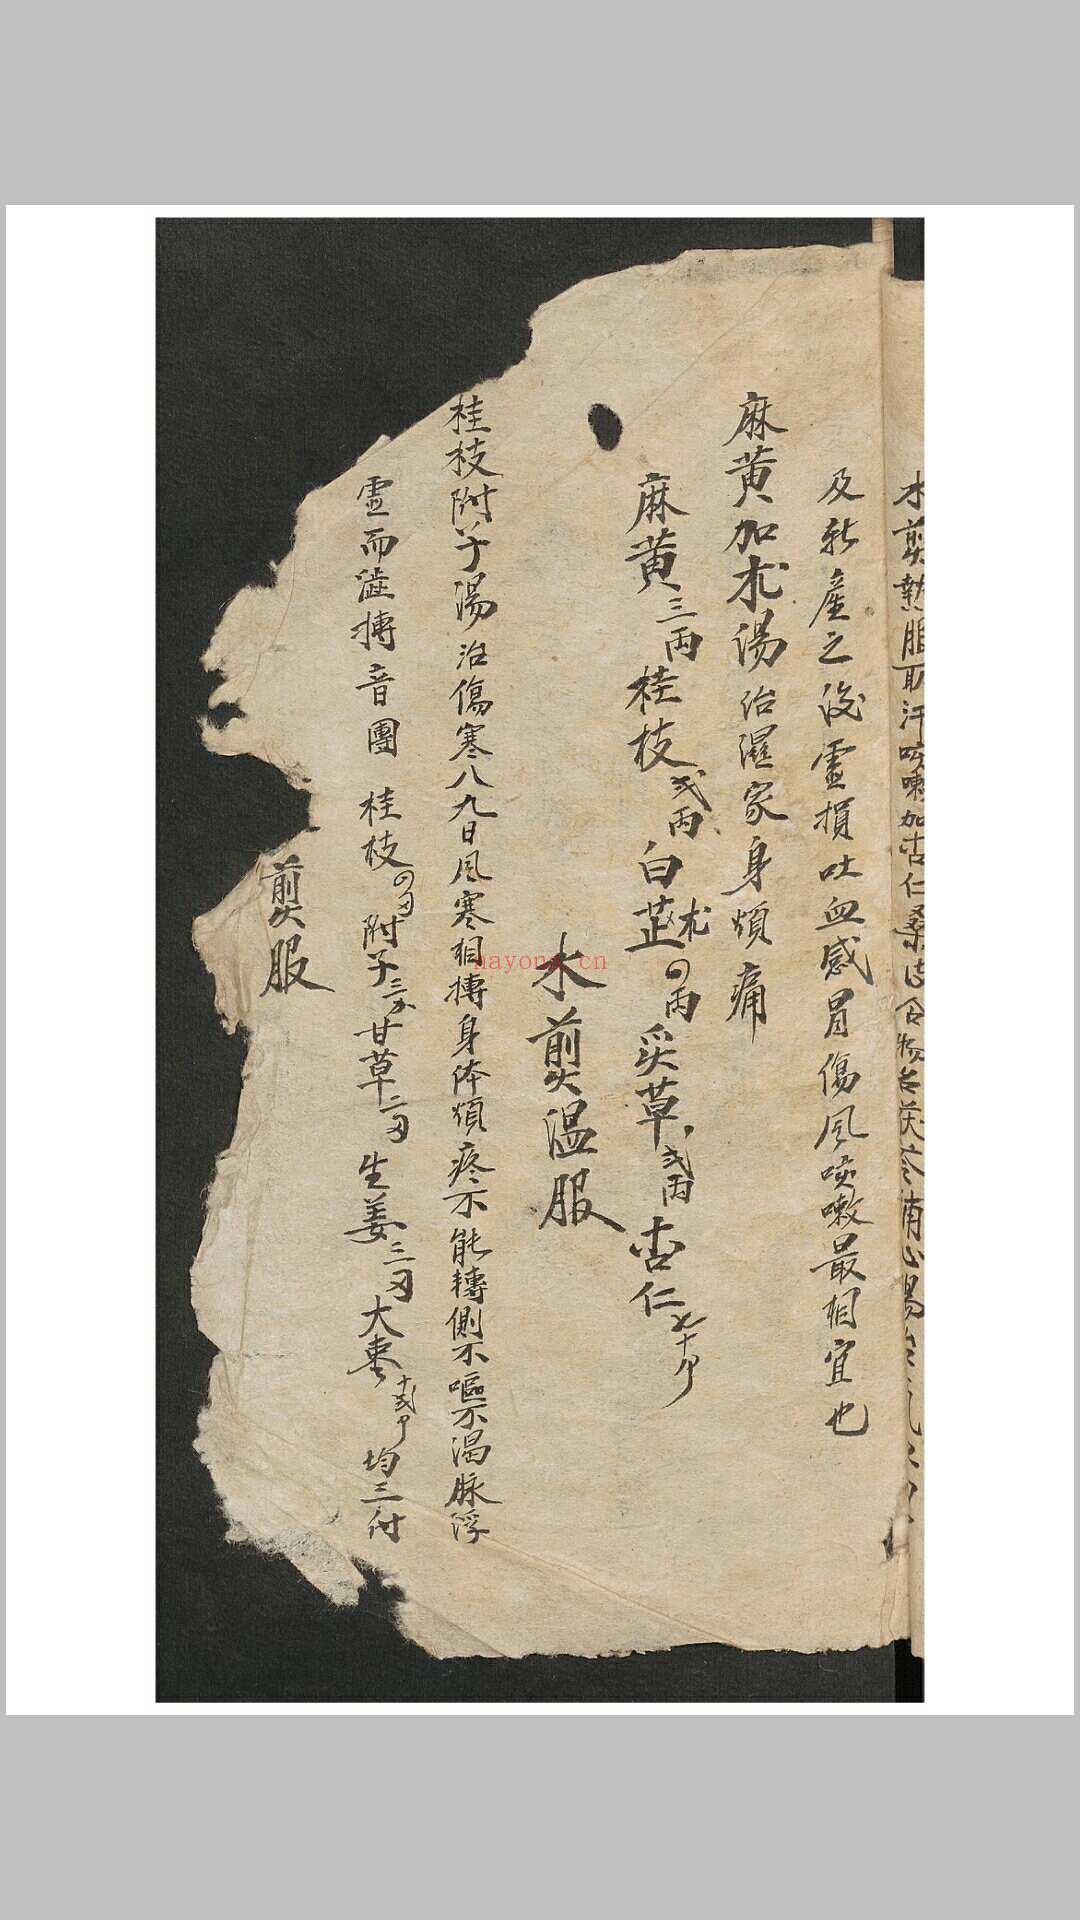 水煎熱服取汗咳嗽加杏仁桑
及新產之後虛損吐血感冒傷風咳嗽最相宜也
麻黄加朮湯治濕家身煩痛
麻黄三両桂枝弍両白芷朮四両炙草弍両杏仁七十个
水煎温服
桂枝附子湯治傷寒八九日風寒相摶身体煩疼不能轉側不嘔不渴脉浮
虛而澁摶音團 桂枝四刄附子三分甘草二刄生姜三刄大棗十弍个均三付
煎服
nayona.cn